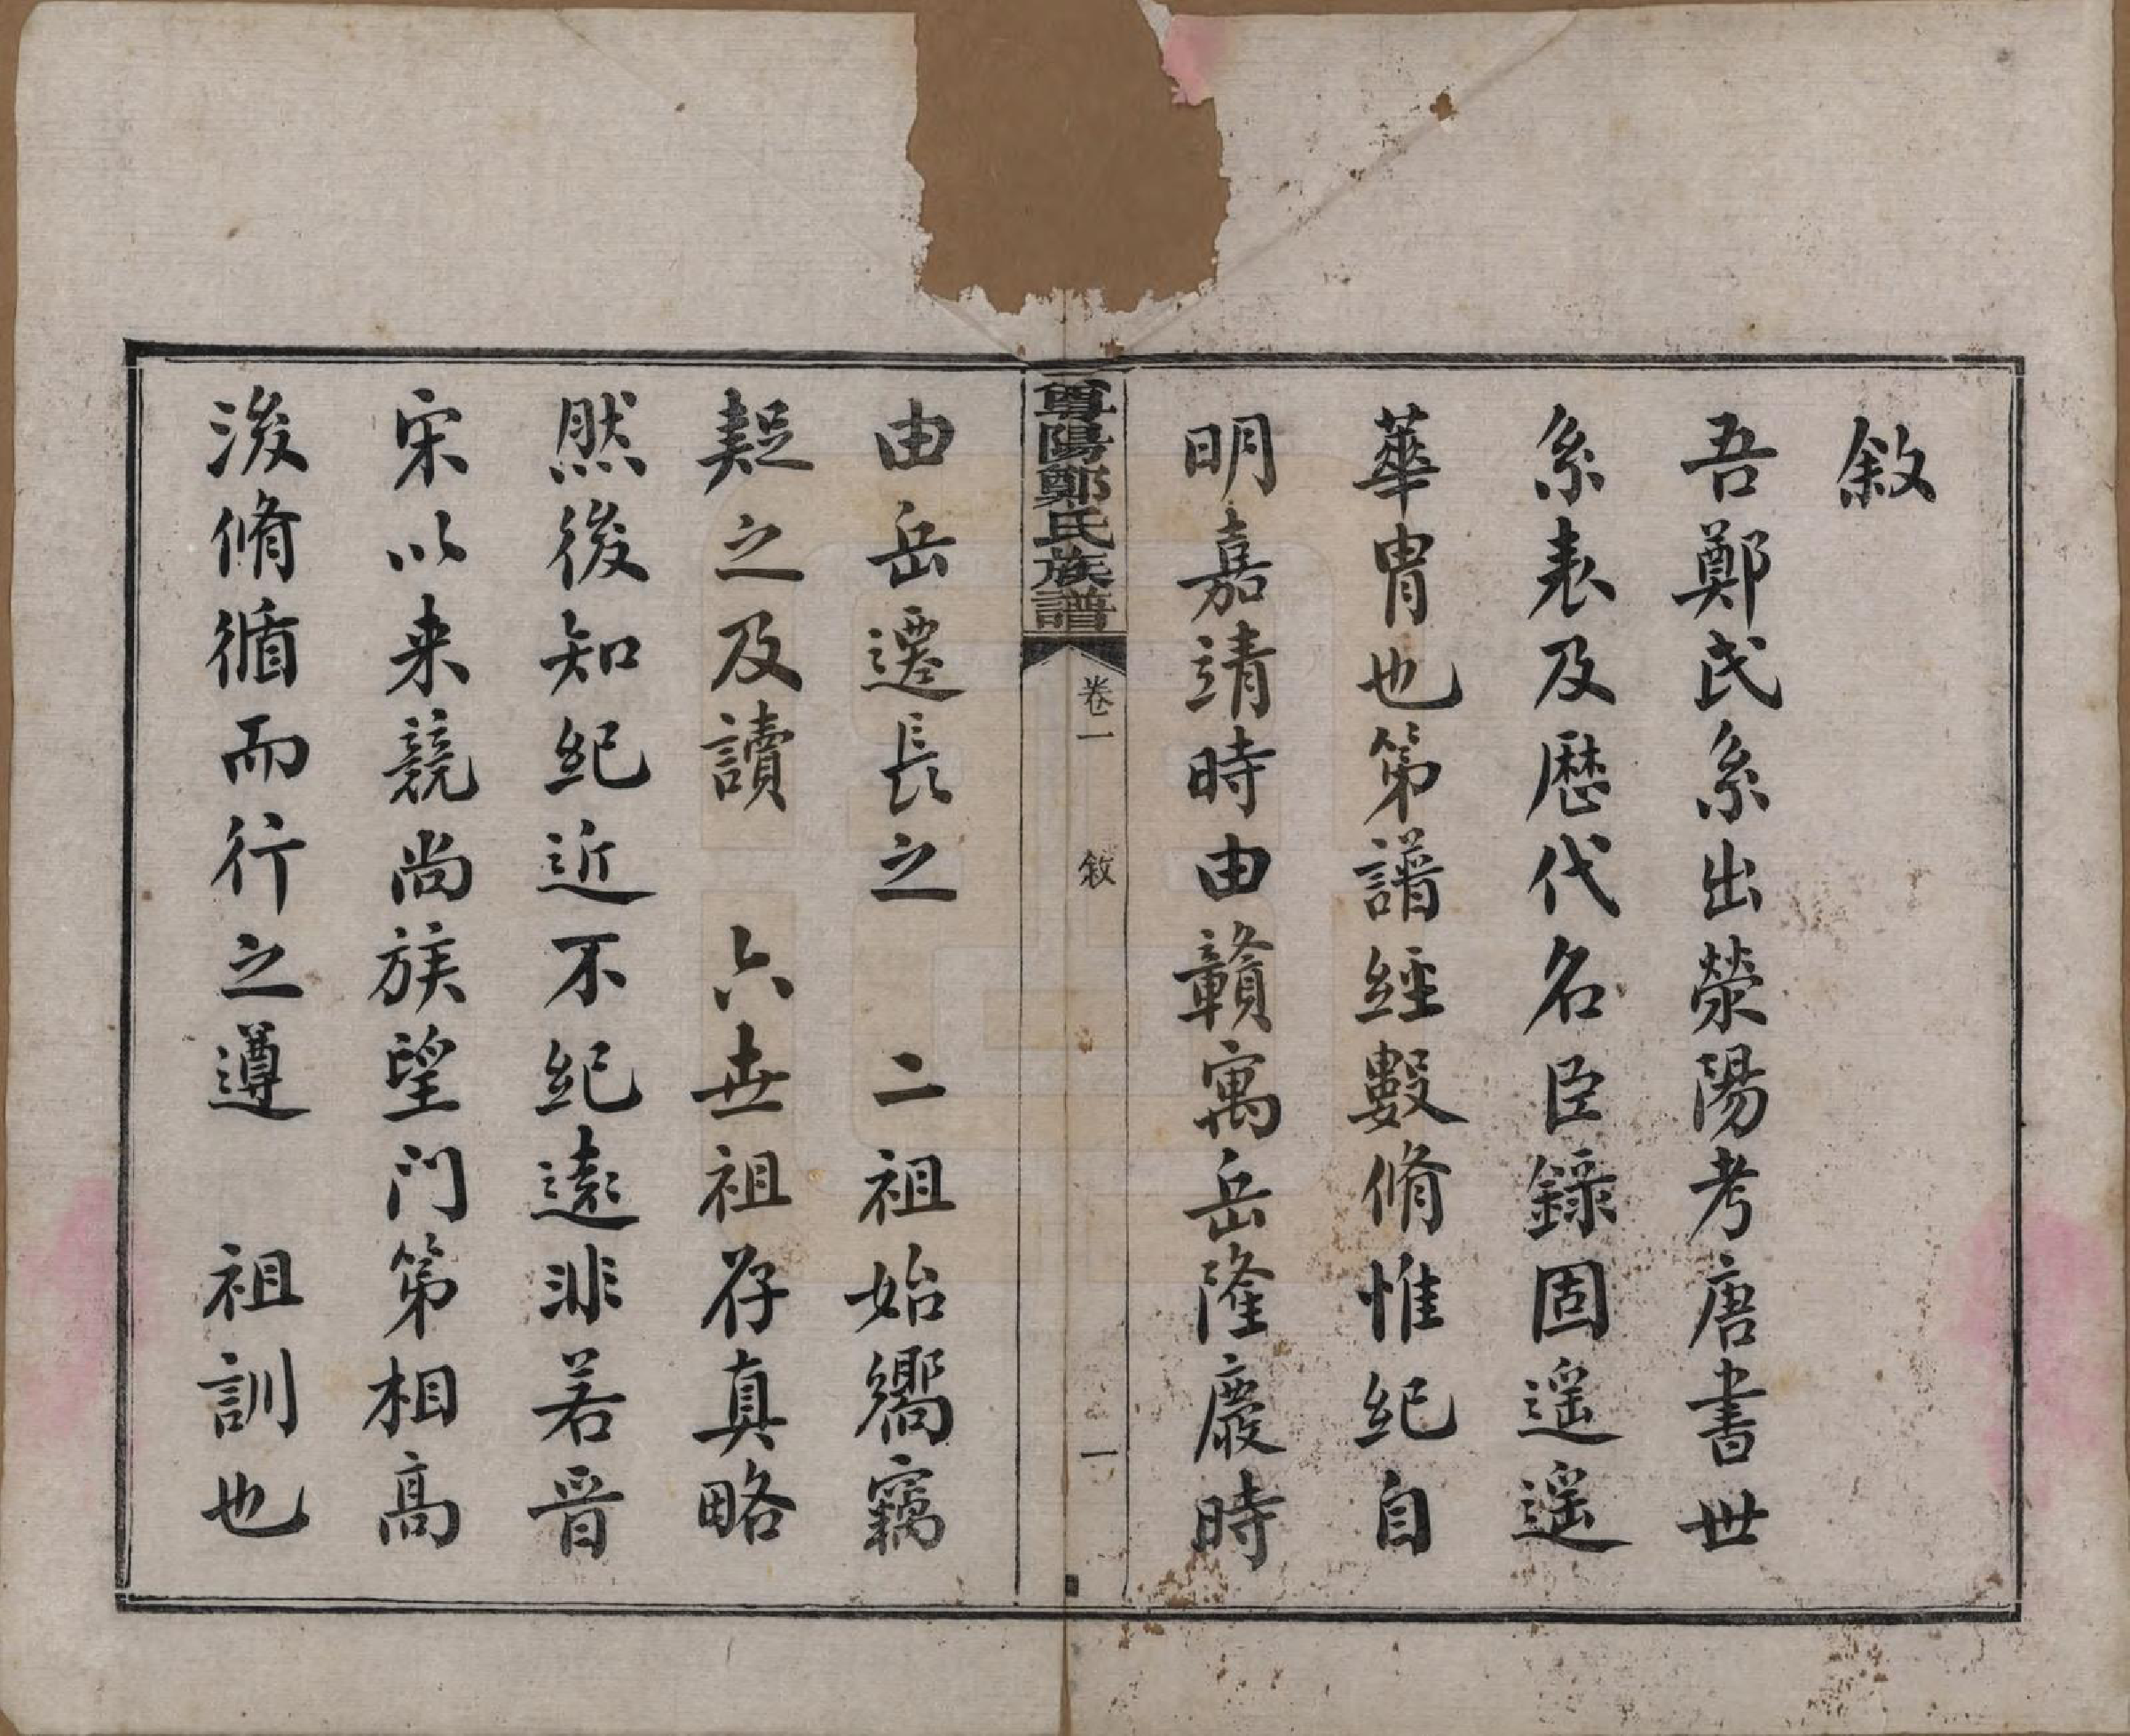 敘
吾鄭氏系出滎陽考唐書世
系表及歷代名臣錄固遥遥
華胄也第譜經數脩惟紀自
明嘉靖時由贛寓岳隆慶時
尊陽鄭氏族譜 卷一 敘 一
由岳遷長之 二祖始嚮竊
疑之及讀 六世祖存真略
然後知紀近不紀遠非若晉
宋以来競尚族望门第相高
後脩循而行之遵 祖訓也